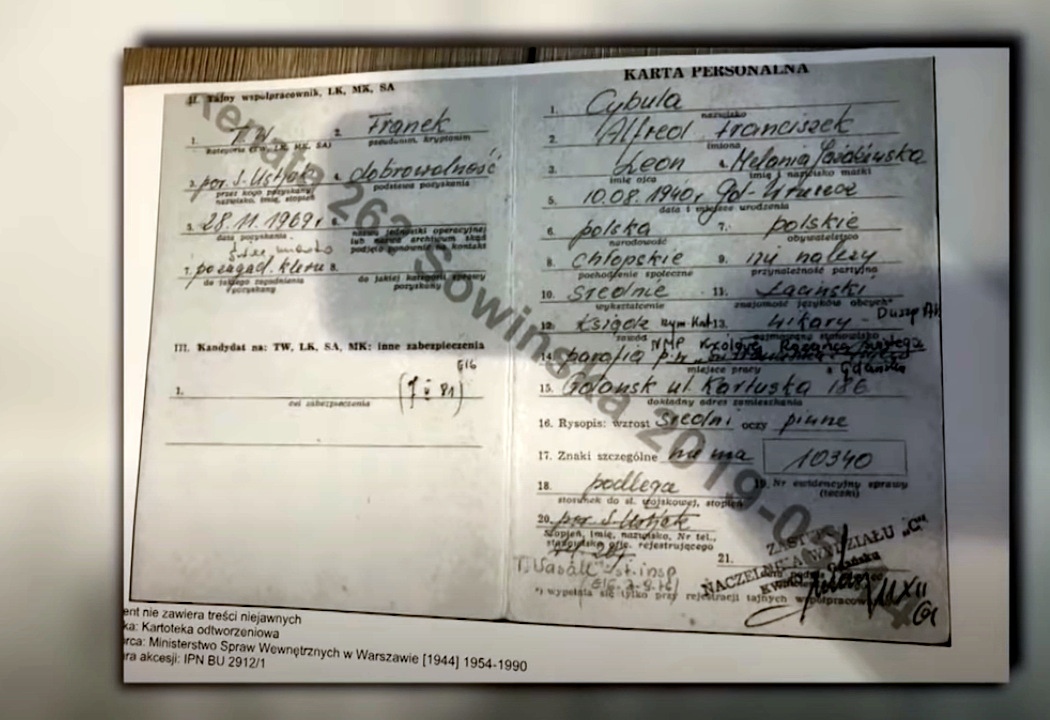 II. Tajny współpracownik, LK, MK, SA
1. TW
kategoria (TW, LK, MK, SA)
2. Franek
pseudonim, kryptonim
3. por. S. Ustjak
przez kogo pozyskany
nazwisko, imię, stopień
4. dobrowolność
podstawa pozyskania
5. 28.11.1969 r
data pozyskania
6.
nazwa jednostki operacyjnej
lub nazwa archiwum skąd
podjęto ponownie na kontakt
7. po zagad. kleru
do jakiego zagadnienia
pozyskany
8.
do jakiej kategorii sprawy
pozyskany
III. Kandydat na: TW, LK, SA, MK: inne zabezpieczenia
1.
cel zabezpieczenia
KARTA PERSONALNA
1. Cybula
nazwisko
2. Alfred Franciszek
imiona
3. Leon
imię ojca
4. Melania
imię i nazwisko matki
5. 10.08.1940 r
data i miejsce urodzenia
6. polska
narodowość
7. polskie
obywatelstwo
8. chłopskie
pochodzenie społeczne
9. nie należy
przynależność partyjna
10. średnie
wykształcenie
11. Łaciński
znajomość języków obcych
12. Ksiądz rzym-Kat
zawód
13. wikary -
zajmowane stanowisko
14. parafia p.w.
NMP Królowej Różańca
miejsce pracy
15. Gdańsk ul. Kartuska 186
dokładny adres zamieszkania
16. Rysopis: wzrost średni oczy piwne
17. Znaki szczególne nie ma
10340
19. Nr ewidencyjny sprawy
(teczki)
18. podlega
stosunek do sł. wojskowej, stopień
20. por. S. Ustjak
Stopień, imię, nazwisko, Nr tel.,
stanowisko ofic. rejestrującego
21.
ZASTĘPCA
NACZELNIKA WYDZIAŁU „C"
*) wypełnia się tylko przy rejestracji tajnych współpracowników
Renata 263 Sowińska 2019-0
ent nie zawiera treści niejawnych
ka: Kartoteka odtworzeniowa
rca: Ministerstwo Spraw Wewnętrznych w Warszawie [1944] 1954-1990
ra akcesji: IPN BU 2912/1